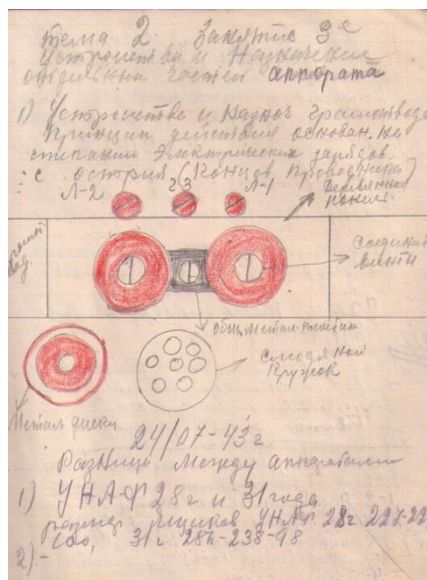 Тема 2 Занятие 3е
Устройства и Назначение
отдельных частей аппората
1) Устройство и Назнач громоотвода
Принцип действия основан. на
стекании Электрических зарядов
с острия (Концов. Проводника)
Л-2 23 Л-1 Деревянная
понель
Соединит
винты
общ метал. пластин
смодяной
Кружок
Метал диски
24/07-43 г
Разница между аппоратами
1) УНАФ 28 г и 31 года
размер ящиков УНАФ 28 г 227-22
31 г 286-238-98
2) -